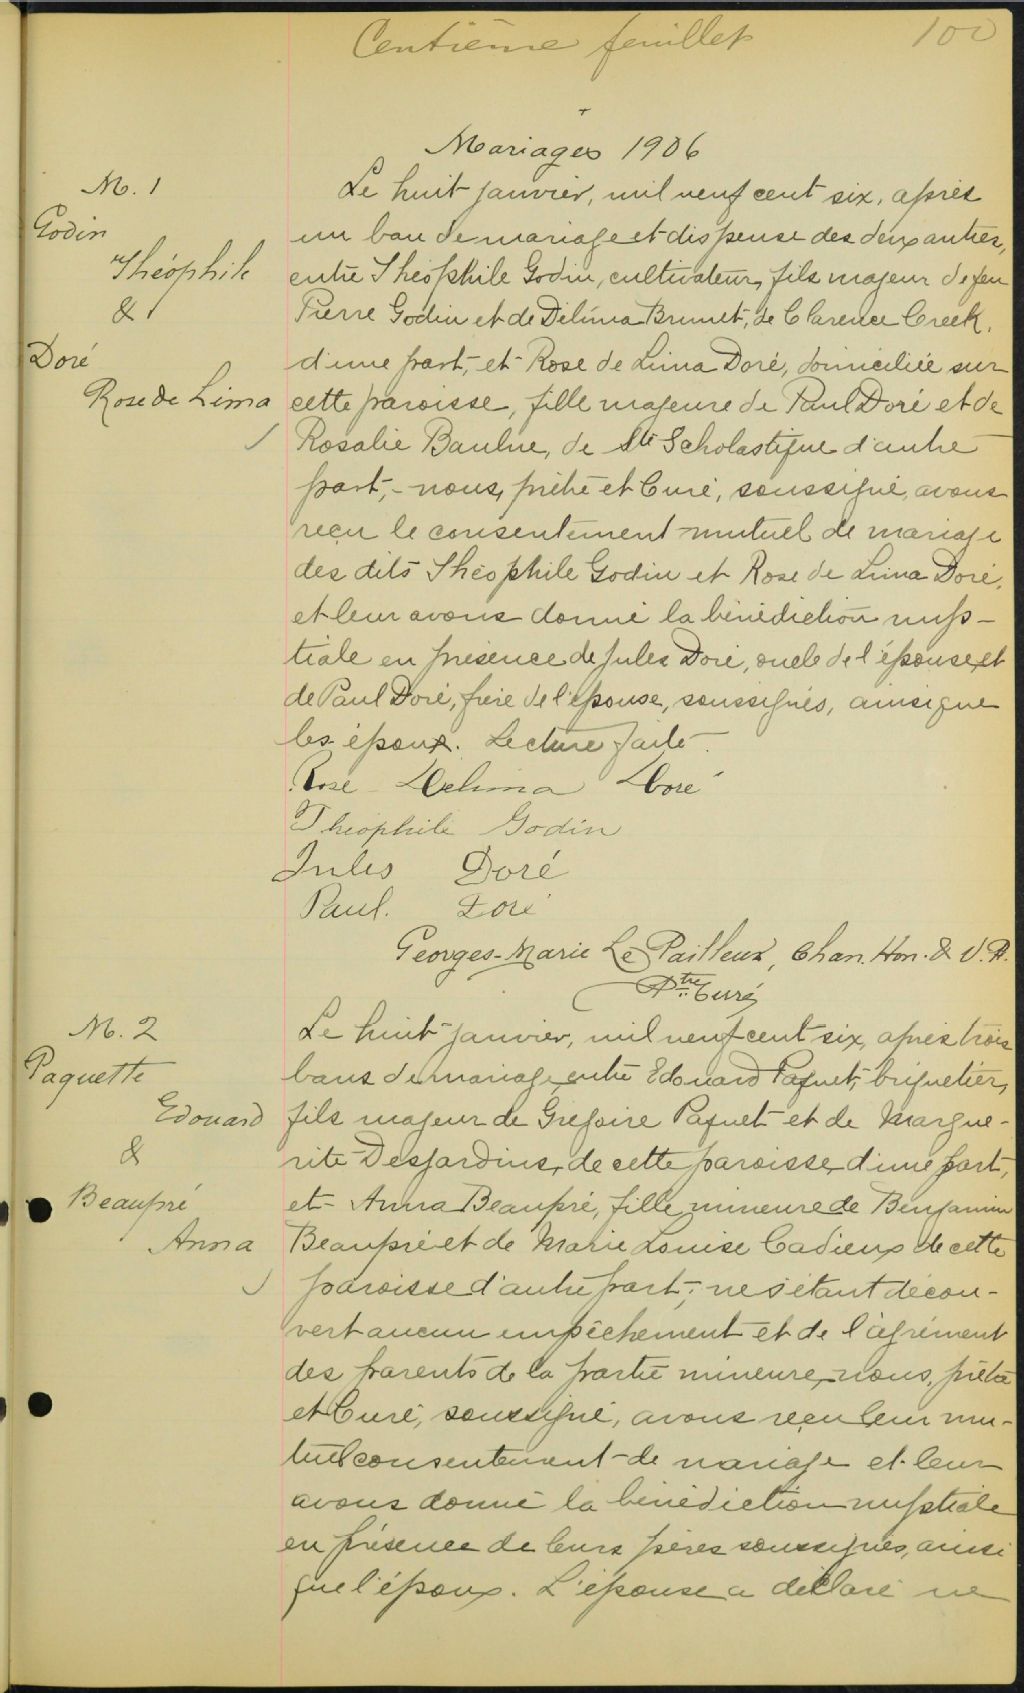 Centième feuillet 100
Mariages 1906
M. 1
Godin
Théophile
&
Doré
Rose de Lima
Le huit janvier, mil neuf cent six, après
un ban de mariage et dispense des deux autres,
entre Théophile Godin, cultivateur, fils majeur de feu
Pierre Godin et de Délima Brunet, de Clarence Creek,
d'une part, et Rose de Lima Doré, domiciliée sur
cette paroisse, fille majeure de Paul Doré et de
Rosalie Baulne, de Ste Scholastique d'autre
part, - nous, prêtre et Curé, soussigné, avons
reçu le consentement mutuel de mariage
des dits Théophile Godin et Rose de Lima Doré,
et leur avons donné la bénédiction nup-
tiale en présence de Jules Doré, oncle de l'épouse, et
de Paul Doré, frère de l'épouse, soussignés, ainsi que
les époux. Lecture faite.
Rose Delima Doré
Théophile Godin
Jules Doré
Paul. Doré
Georges-Marie Le Pailleur, Chan. Hon. & V. F.
Ptre Curé
M. 2
Paquette
Edouard
&
Beaupré
Anna
Le huit janvier, mil neuf cent six, après trois
bans de mariage entre Edouard Paquet, briquetier,
fils majeur de Grégoire Paquet et de Margue-
rite Desjardins, de cette paroisse, d'une part,
et Anna Beaupré, fille mineure de Benjamin
Beaupré et de Marie Louise Cadieux de cette
paroisse d'autre part; ne s'étant décou-
vert aucun empêchement et de l'agrément
des parents de la partie mineure, nous, prêtre
et Curé, soussigné, avons reçu leur mu-
tuel consentement de mariage et leur
avons donné la bénédiction nuptiale
en présence de leurs pères soussignés, ainsi
que l'époux. L'épouse a déclaré ne